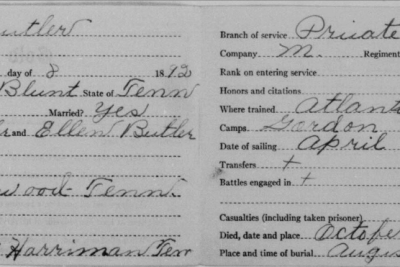 Butler
day of 8 1892
Blunt, State of Tenn
Married? Yes
and Ellen Butler
wood Tenn
Harriman Ten
Branch of service Private
Company M. Regiment
Rank on entering service
Honors and citations
Where trained Atlant
Camps Gordon
Date of sailing April
Transfers +
Battles engaged in +
Casualties (including taken prisoner)
Died, date and place October
Place and time of burial Augus